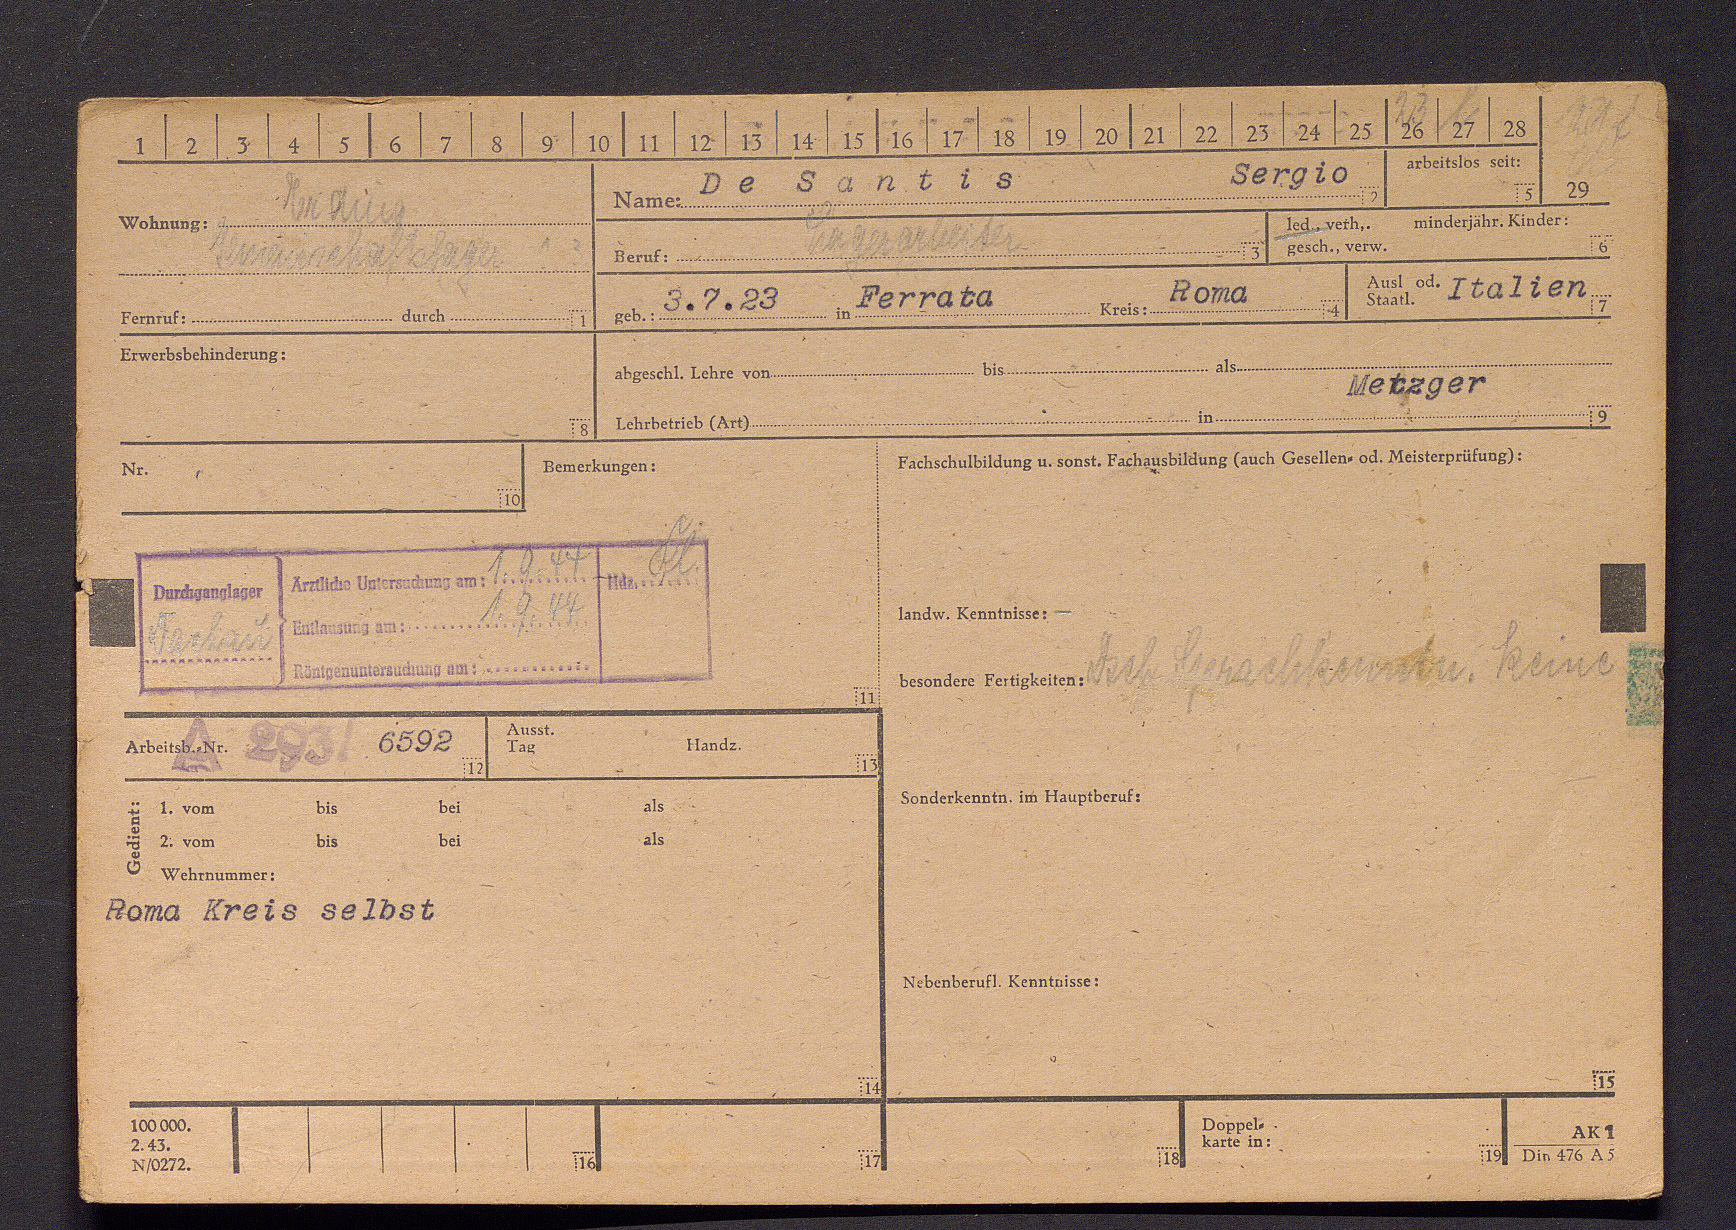 1 2 3 4 5 6 7 8 9 10 11 12 13 14 15 16 17 18 19 20 21 22 23 24 25 26 27 28
29
Name: De Santis Sergio 2
arbeitslos seit: 5
Wohnung: Erding
Gemeinschaftslager
Beruf: Lagerarbeiter 3
led., verh,. minderjähr. Kinder:
gesch., verw. 6
Fernruf: durch 1
geb.: 3.7.23 in Ferrata Kreis: Roma 4
Ausl od. Staatl. Italien 7
Erwerbsbehinderung: 8
abgeschl. Lehre von bis als
Metzger
Lehrbetrieb (Art) in 9
Nr. 10
Bemerkungen:
Durchganglager
Dachau
Ärztliche Untersuchung am: 1.9.44
Entlausung am: 1.9.44
Röntgenuntersuchung am:
Hdz.
11
Fachschulbildung u. sonst. Fachausbildung (auch Gesellen- od. Meisterprüfung):
landw. Kenntnisse: —
besondere Fertigkeiten: keine
Arbeitsb.-Nr. A 293/ 6592 12
Ausst.
Tag Handz. 13
Sonderkenntn. im Hauptberuf:
Gedient:
1. vom bis bei als
2. vom bis bei als
Wehrnummer:
Roma Kreis selbst
14
Nebenberufl. Kenntnisse:
15
100 000.
2. 43.
N/0272.
16
17
18
Doppel-
karte in: 19
AK 1
Din 476 A 5